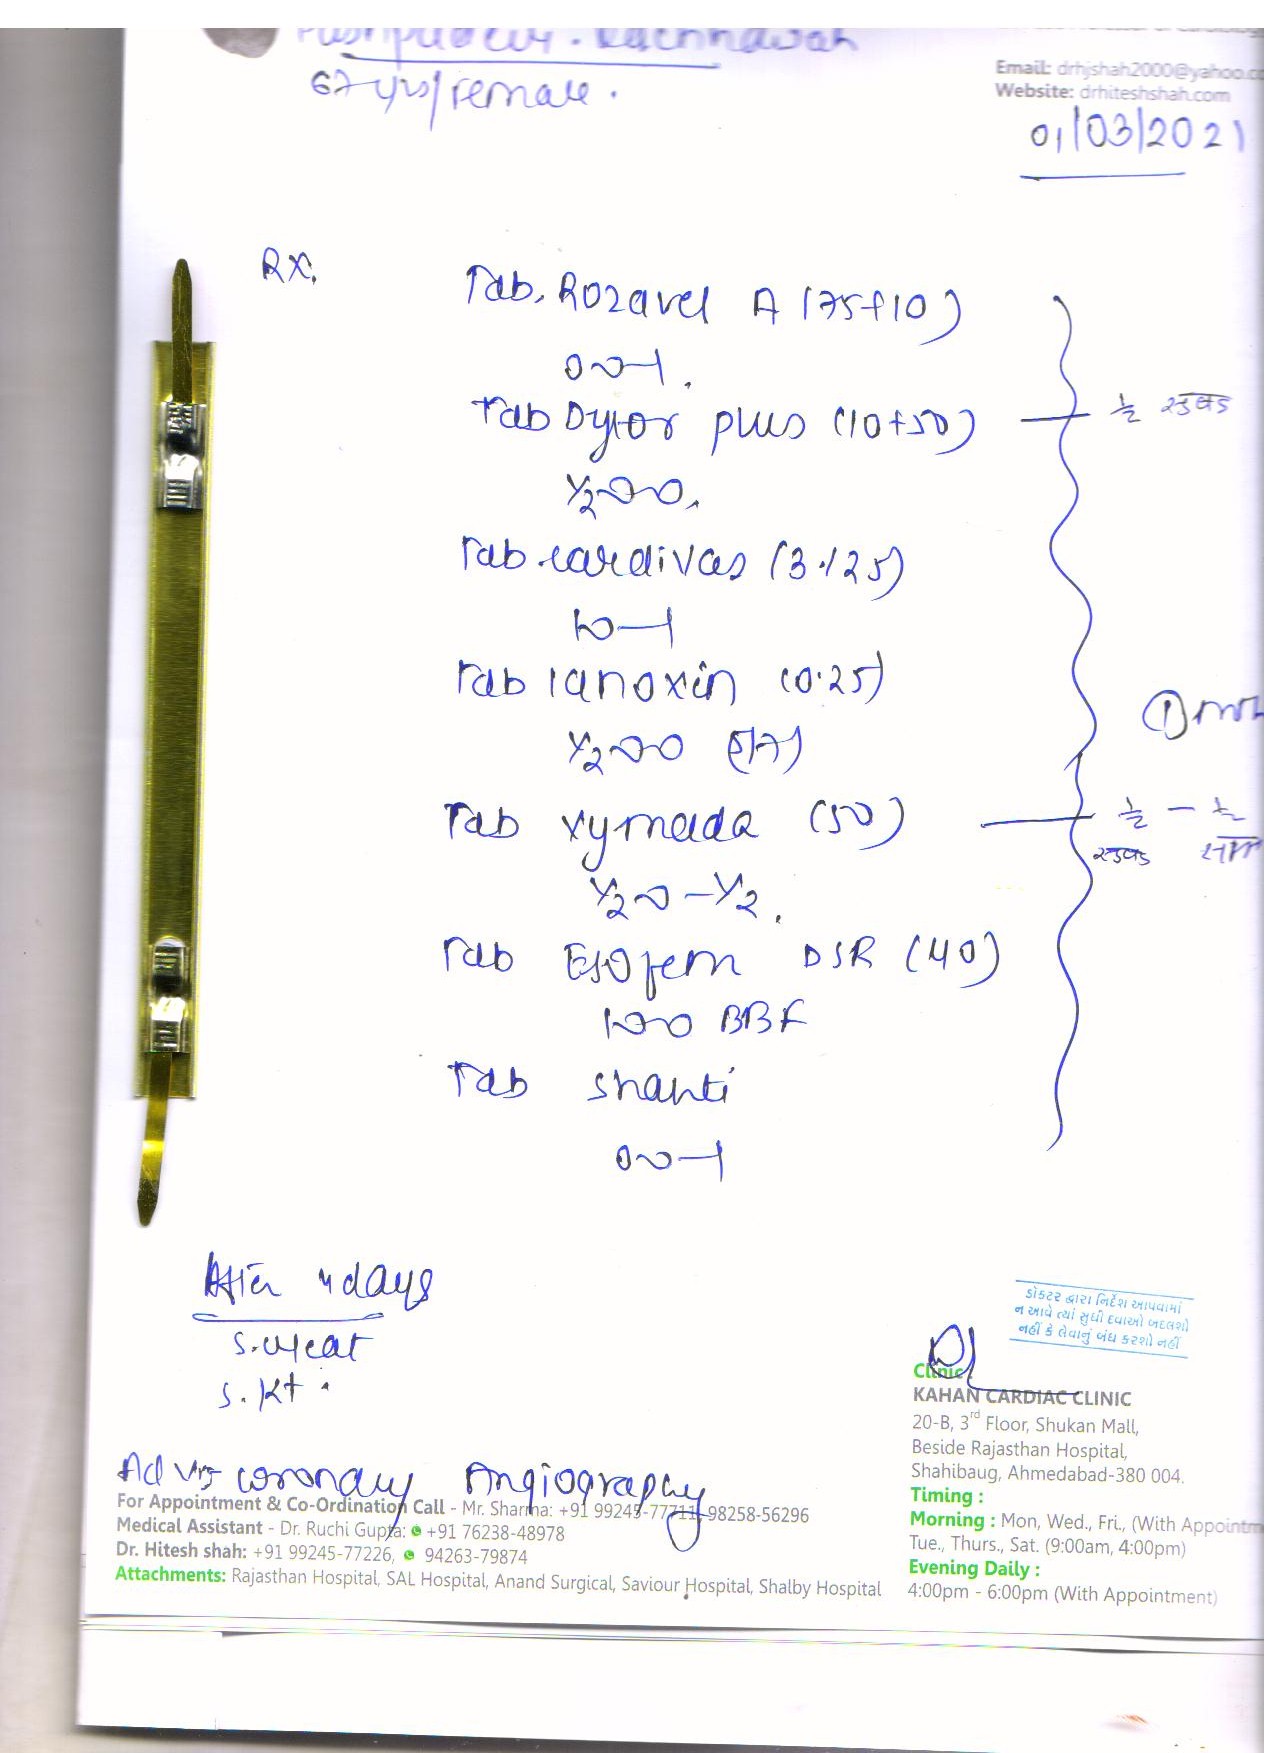 67 yrs/Female.
Email: drhjshah2000@yahoo.co
Website: drhiteshshah.com
01/03/2021
Rx.
Tab. Rozavel A (75+10)
0-0-1.
Tab Dytor plus (10+50)
½ સવારે
½-0-0.
Tab cardivas (3.125)
1-0-1
Tab lanoxin (0.25)
½-0-0 (5/7)
Tab xymada (50)
½ - ½
½-0-½.
Tab Esofem DSR (40)
1-0-0 BBF
Tab shanti
0-0-1
After 4 days
S. creat
S. K+.
ડૉક્ટર દ્વારા નિર્દેશ આપવામાં
ન આવે ત્યાં સુધી દવાઓ બદલશો
નહીં કે લેવાનું બંધ કરશો નહીં
Clinic
KAHAN CARDIAC CLINIC
20-B, 3rd Floor, Shukan Mall,
Beside Rajasthan Hospital,
Shahibaug, Ahmedabad-380 004.
Timing :
Morning : Mon, Wed., Fri., (With Appointm
Tue., Thurs., Sat. (9:00am, 4:00pm)
Evening Daily :
4:00pm - 6:00pm (With Appointment)
Adv coronary Angiography
For Appointment & Co-Ordination Call - Mr. Sharma: +91 99245-77711, 98258-56296
Medical Assistant - Dr. Ruchi Gupta: +91 76238-48978
Dr. Hitesh shah: +91 99245-77226, 94263-79874
Attachments: Rajasthan Hospital, SAL Hospital, Anand Surgical, Saviour Hospital, Shalby Hospital